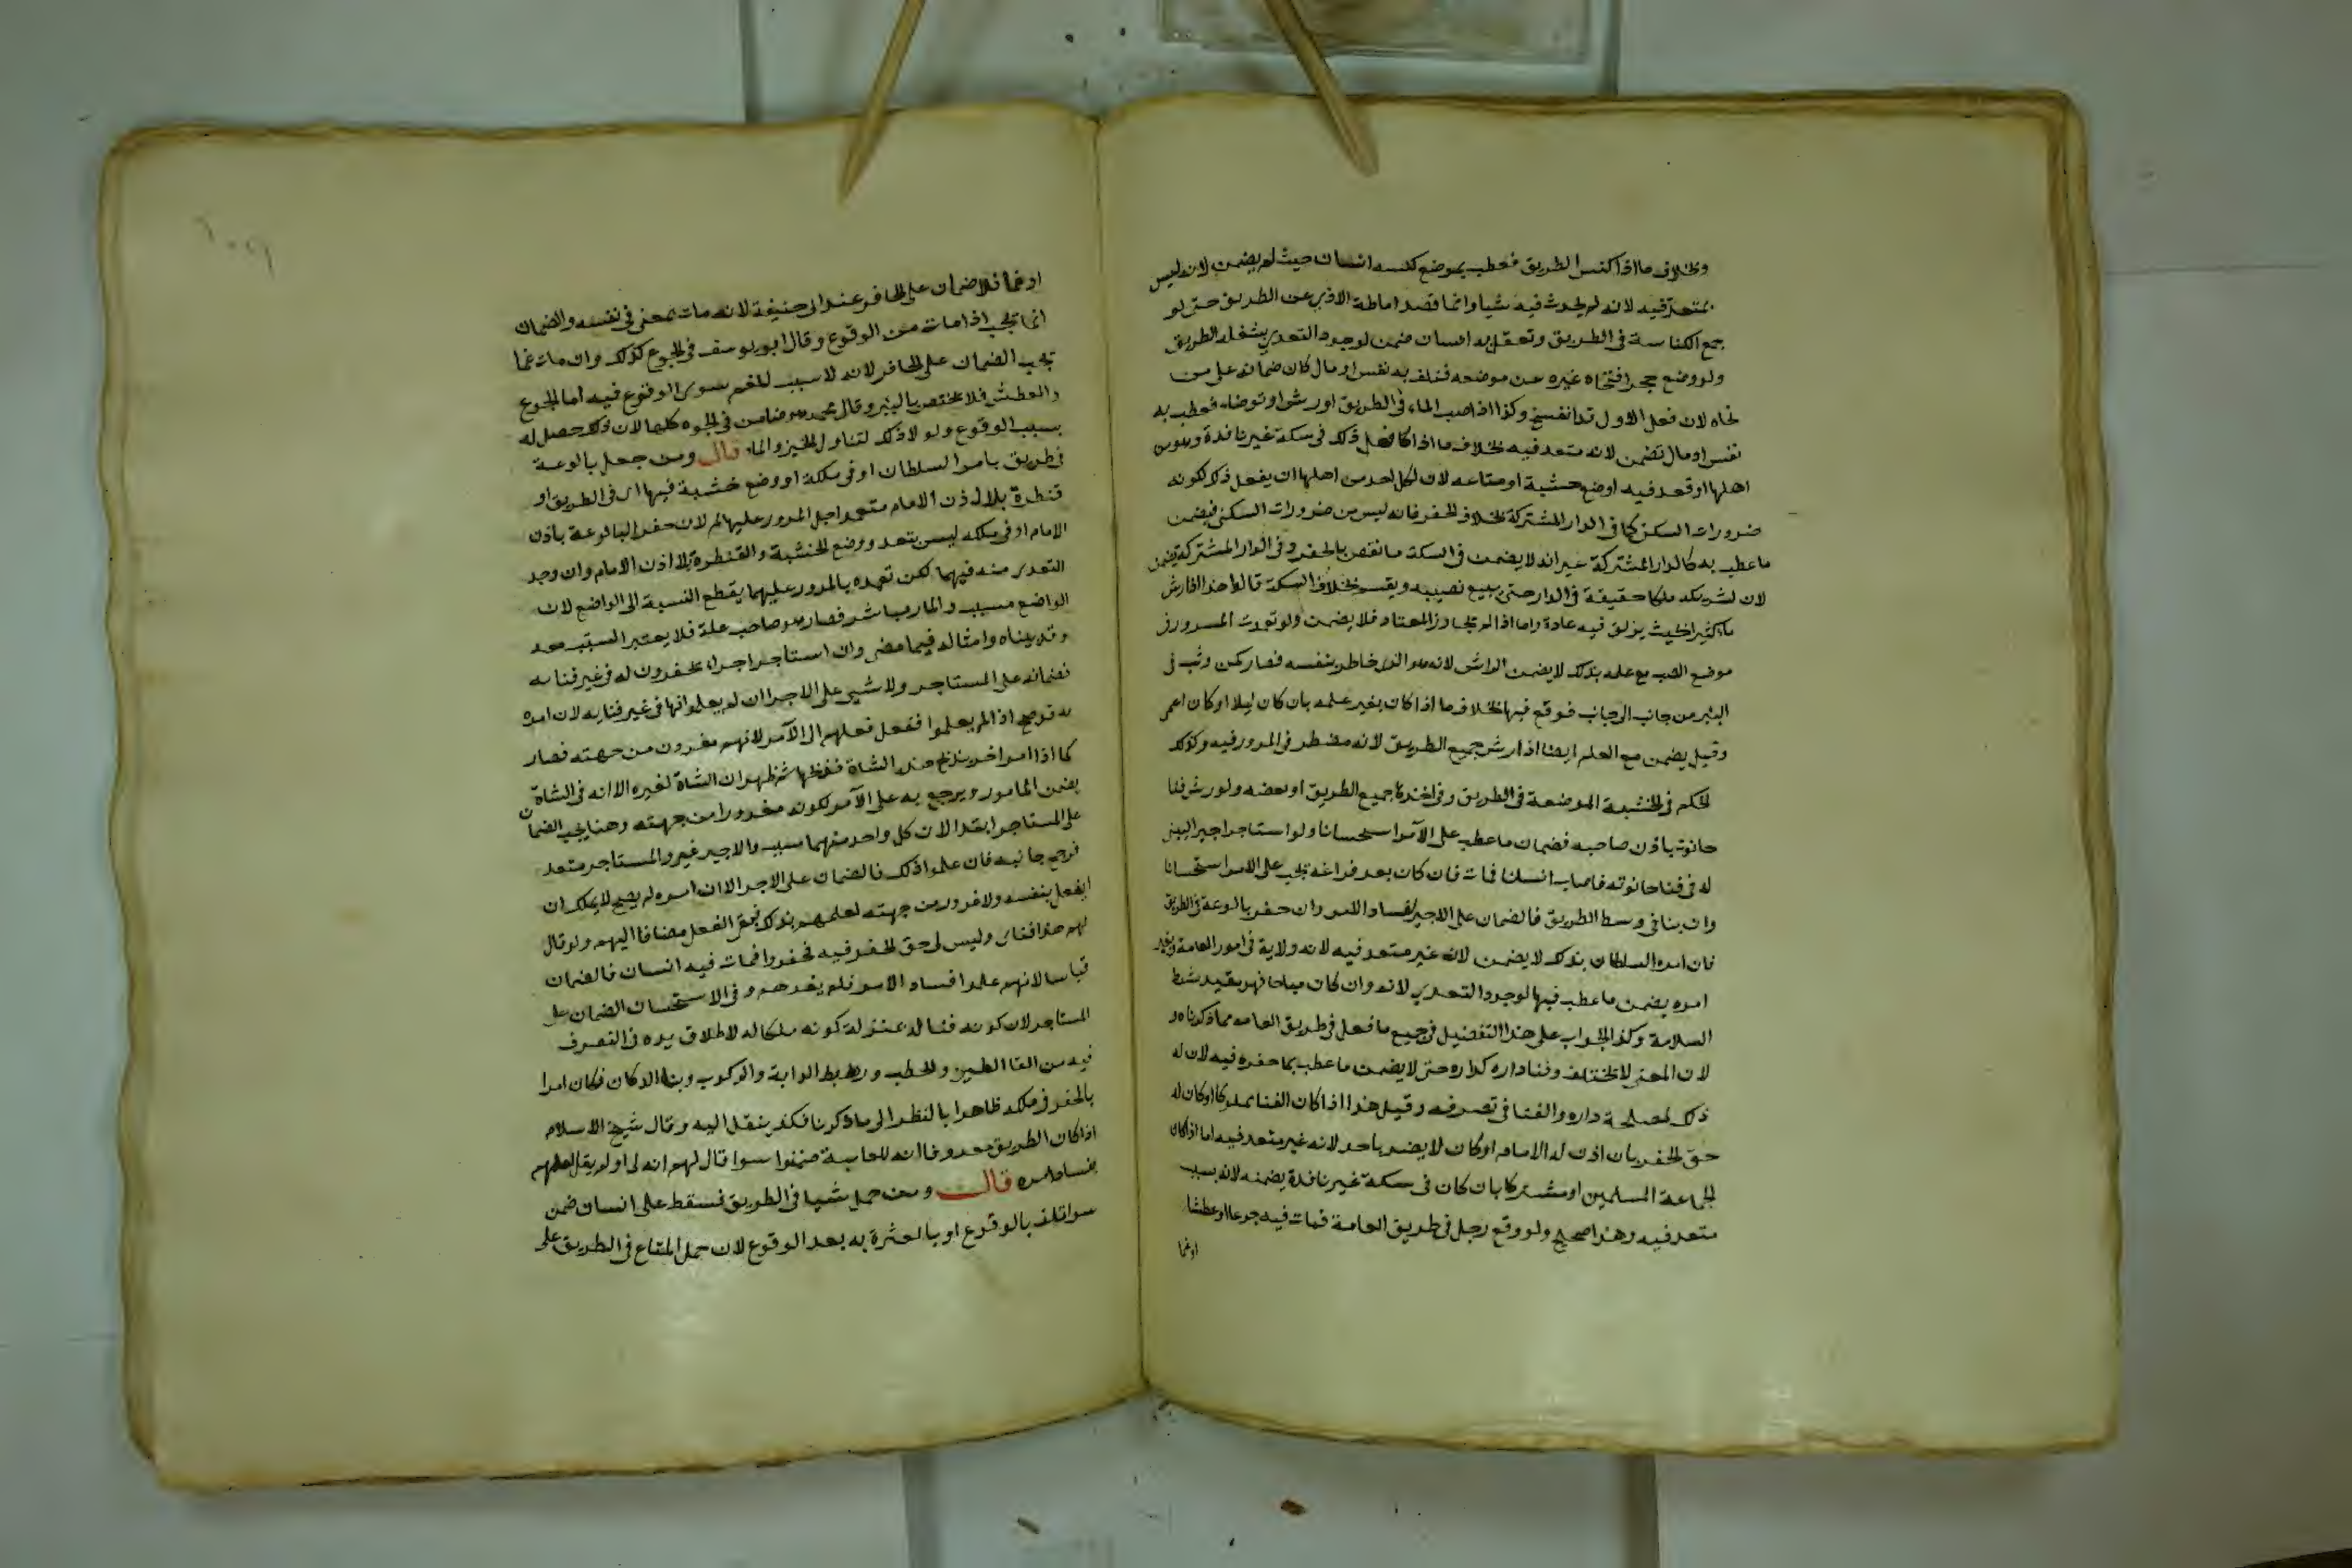 وبخلاف ما اذا كنس الطريق فعطب بموضع كنسه انسان حيث لم يضمن لانه ليس
بمتعد فيه لانه لم يحدث فيه شيا وانما قصد اماطة الاذى عن الطريق حتى لو
جمع الكناسة فى الطريق وتعقل به انسان ضمن لوجود التعدي بشغله الطريق
ولو وضع حجرا فنحاه غيره عن موضعه فتلف به نفس او مال كان ضمانه على من
نحاه لان فعل الاول قد انفسخ وكذا اذا صب الماء فى الطريق او رش او توضا، فعطب به
نفس او مال تضمن لانه متعد فيه بخلاف ما اذا كان فعل ذلك فى سكة غير نافدة وهو من
اهلها او قعد فيه اوضع خشبة او متاعه لان لكل احد من اهلها ان يفعل ذلك لكونه
ضرورات السكن كما فى الدار المشتركة بخلاف الحفر فانه ليس من ضرورات السكنى فيضمن
ما عطب به كالدار المشتركة غير انه لا يضمن فى السكة ما نقص بالحفر وفى الدار المشتركة يضمن
لان لشريكه ملكا حقيقة فى الدار حتى يبيع نصيبه ويقسم بخلاف السكة قالوا هذا اذا رش
ماء كثيرا بحيث يزلق فيه عادة واما اذا لم يتجاوز المعتاد فلا يضمن ولو تعمد المرور فى
موضع الصب مع علمه بذلك لا يضمن الراش لانه هو الذى خاطر بنفسه فصار كمن وثب فى
البئر من جانب الى جانب فوقع فيها بخلاف ما اذا كان بغير علمه بان كان ليلا او كان اعمى
وقيل يضمن مع العلم ايضا اذا رش جميع الطريق لانه مضطر فى المرور فيه وكذلك
الحكم فى الخشبة الموضعة فى الطريق وفى اخذها جميع الطريق او بعضه ولو رش فنا
حانوت باذن صاحبه فضمان ما عطب على الآمر استحسانا ولو استاجر اجيرا ليبنى
له فى فنا حانوته فاصاب انسانا فمات فان كان بعد فراغه تجب على الامر استحسانا
وان بنا فى وسط الطريق فالضمان على الاجير لفساد الامر وان حفر بالوعة فى الطريق
فان امره السلطان بذلك لا يضمن لانه غير متعد فيه لانه ولاية فى امور العامة وبغير
امره يضمن ما عطب فيها لوجود التعدي لانه وان كان مباحا فهو مقيد بشرط
السلامة وكذا الجواب على هذا التفصيل فى جميع ما فعل فى طريق العامه مما ذكرناه و
لان المعنى لا يختلف وفنا داره كداره حتى لا يضمن ما عطب بما حفره فيه لان له
ذلك لمصلحة داره والفنا فى تصرفه وقيل هذا اذا كان الفنا مملوكا او كان له
حق الحفر بان اذن له الامام او كان لا يضر باحد لانه غير متعد فيه اما اذا كان
لجماعة المسلمين او مشتركا بان كان فى سكة غير نافدة يضمنه لانه بسبب
متعد فيه وهذا صحيح ولو وقع رجل فى طريق العامة فمات فيه جوعا او عطشا
او غما
او غما فلا ضمان على الحافر عند ابى حنيفة لانه مات بمعنى فى نفسه والضمان
انما يجب اذا مات من الوقوع وقال ابو يوسف فى الجوع كذلك وان مات غما
تجب الضمان على الحافر لانه لا سبب للغم سوى الوقوع فيه اما الجوع
والعطش فلا يختص بالبئر وقال محمد هو ضامن فى الوجوه كلها لان ذلك حصل له
بسبب الوقوع ولو لا ذلك لتناول الخبز والماء قال ومن جعل بالوعة
فى طريق بامر السلطان او فى ملكه او وضع خشبة فيها اى فى الطريق او
قنطرة بلا اذن الامام متعمد اجل المرور عليها لم لان حفر البالوعة باذن
الامام او فى ملكه ليس بتعد ووضع الخشبة والقنطرة بلا اذن الامام وان وجد
التعدى منه فيهما لكن تعمده بالمرور عليهما يقطع النسبة الى الواضع لان
الواضع مسبب والمار مباشر فصار هو صاحب علة فلا يعتبر المسبب معه
وقد بيناه وامثاله فيما مضى وان استاجر اجراء يحفرون له فى غير فنا به
فضمانه على المستاجر ولا شيى على الاجرا ان لم يعلموا انها فى غير فنايه لان امره
به قد صح اذا لم يعلموا فنقل فعلهم الى الآمر لانهم مغرون من جهته فصار
كما اذا امر اخر بذبح هذه الشاة فذبحها ثم ظهر ان الشاة لغيره الا انه فى الشاة
يضمن المامور ويرجع به على الآمر لكونه مغرورا من جهته وهنا يجب الضمان
على المستاجر ابتدا لان كل واحد منهما مسبب والاجير غير والمستاجر متعد
فرجح جانبه فان علموا ذلك فالضمان على الاجرا لان امره لم يصح لا يملك ان
ايفعل بنفسه ولا غرور من جهته لعلمهم بذلك فبقى الفعل مضافا اليهم ولو قال
لهم هذا فناى وليس لى حق الحفر فيه فحفروا فمات فيه انسان فالضمان
قياسا لانهم علموا فساد الامر فلم يغرهم وفى الاستحسان الضمان على
المستاجر لان كونه فنا له بمنزلة كونه ملكا له لاطلاق يده فى التصرف
فيه من القا الطين والحطب وربط الدابة والركوب وبنا الدكان فكان امرا
بالحفر فى ملكه ظاهرا بالنظر الى ما ذكرنا فكذ ينقل اليه وقال شيخ الاسلام
اذا كان الطريق معروفا انه للعامة ضمنوا سوا قال لهم انه لى او لم يقل لعلمهم
بفساد امره قال ومن حمل شيا فى الطريق فسقط على انسان ضمن
سوا تلف بالوقوع او بالعثرة به بعد الوقوع لان حمل المتاع فى الطريق على